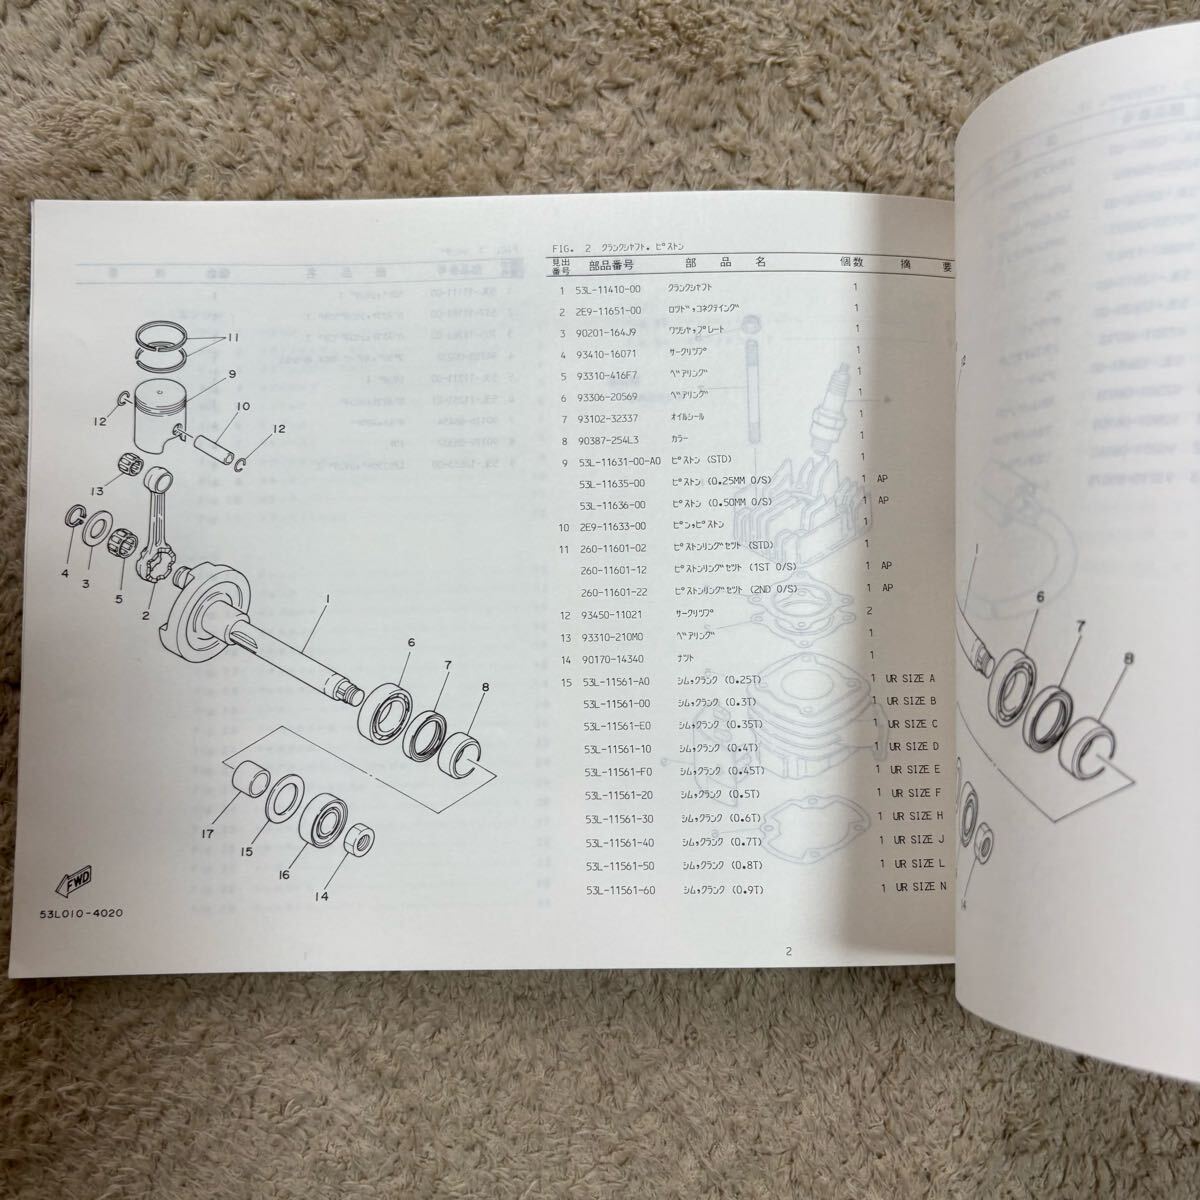 FIG. 2 クランクシャフト. ピストン
見出番号 部品番号 部 品 名 個数 摘 要
1 53L-11410-00 クランクシャフト 1
2 2E9-11651-00 ロツド,コネクテイング 1
3 90201-164J9 ワツシャ,プレート 1
4 93410-16071 サークリツプ 1
5 93310-416F7 ベアリング 1
6 93306-20569 ベアリング 1
7 93102-32337 オイルシール 1
8 90387-254L3 カラー 1
9 53L-11631-00-A0 ピストン (STD) 1
53L-11635-00 ピストン (0.25MM O/S) 1 AP
53L-11636-00 ピストン (0.50MM O/S) 1 AP
10 2E9-11633-00 ピン,ピストン 1
11 260-11601-02 ピストンリングセツト (STD) 1
260-11601-12 ピストンリングセツト (1ST O/S) 1 AP
260-11601-22 ピストンリングセツト (2ND O/S) 1 AP
12 93450-11021 サークリツプ 2
13 93310-210M0 ベアリング 1
14 90170-14340 ナツト 1
15 53L-11561-A0 シム,クランク (0.25T) 1 UR SIZE A
53L-11561-00 シム,クランク (0.3T) 1 UR SIZE B
53L-11561-E0 シム,クランク (0.35T) 1 UR SIZE C
53L-11561-10 シム,クランク (0.4T) 1 UR SIZE D
53L-11561-F0 シム,クランク (0.45T) 1 UR SIZE E
53L-11561-20 シム,クランク (0.5T) 1 UR SIZE F
53L-11561-30 シム,クランク (0.6T) 1 UR SIZE H
53L-11561-40 シム,クランク (0.7T) 1 UR SIZE J
53L-11561-50 シム,クランク (0.8T) 1 UR SIZE L
53L-11561-60 シム,クランク (0.9T) 1 UR SIZE N
2
11
9
10
12
12
13
4
3
5
2
1
6
7
8
17
15
16
14
FWD
53L010-4020
1
6
7
8
14